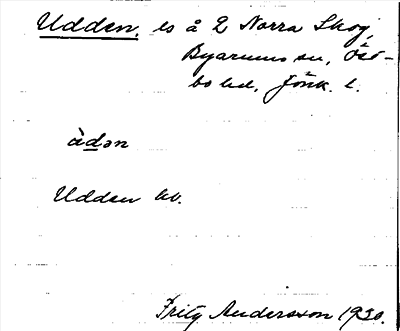 Udden, ls å 2 Norra Skog,
Byarums sn, Öst-
bo hd, Jönk. l.
ùdən
Udden kv.
Fritz Andersson 1930.